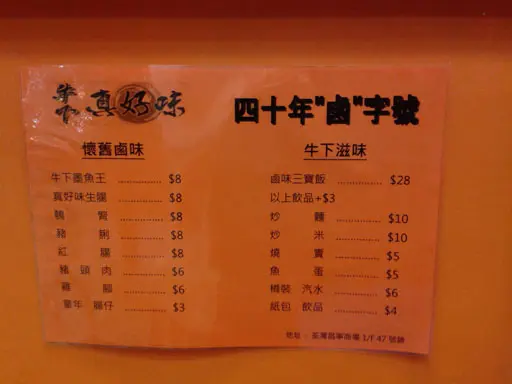 牛下 真好味
四十年"鹵"字號
懷舊鹵味
牛下墨魚王 ............ $8
真好味生腸 ............ $8
鵝腎 ............ $8
豬脷 ............ $8
紅腸 ............ $8
豬頭肉 ............ $6
雞腳 ............ $6
童年 腸仔 ............ $3
牛下滋味
鹵味三寶飯 ............ $28
以上飲品+$3
炒麵 ............ $10
炒米 ............ $10
燒賣 ............ $5
魚蛋 ............ $5
樽裝 汽水 ............ $6
紙包 飲品 ............ $4
地址: 荃灣昌寧商場 1/F 47 號舖